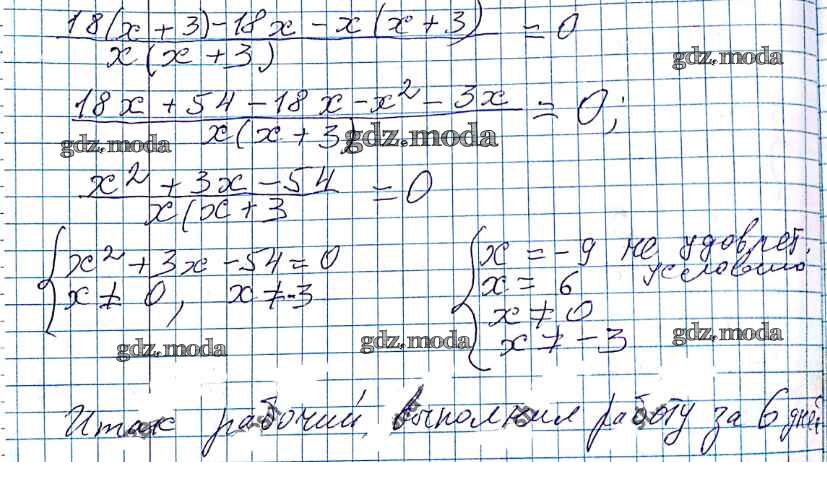 18(x + 3) - 18x - x(x + 3) / x(x + 3) = 0
gdz.moda
18x + 54 - 18x - x² - 3x / x(x + 3) = 0;
gdz.moda gdz.moda
x² + 3x - 54 / x(x + 3 = 0
{ x² + 3x - 54 = 0
x ≠ 0, x ≠ -3
{ x = -9 не удовлет. условию
x = 6
x ≠ 0
x ≠ -3
gdz.moda gdz.moda gdz.moda
Итак рабочий выполнил работу за 6 дней